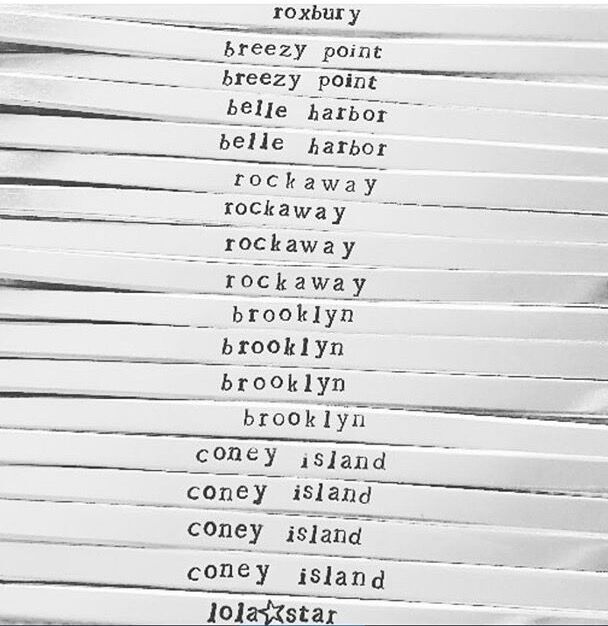 roxbury
breezy point
breezy point
belle harbor
belle harbor
rockaway
rockaway
rockaway
rockaway
brooklyn
brooklyn
brooklyn
brooklyn
coney island
coney island
coney island
coney island
lola☆star